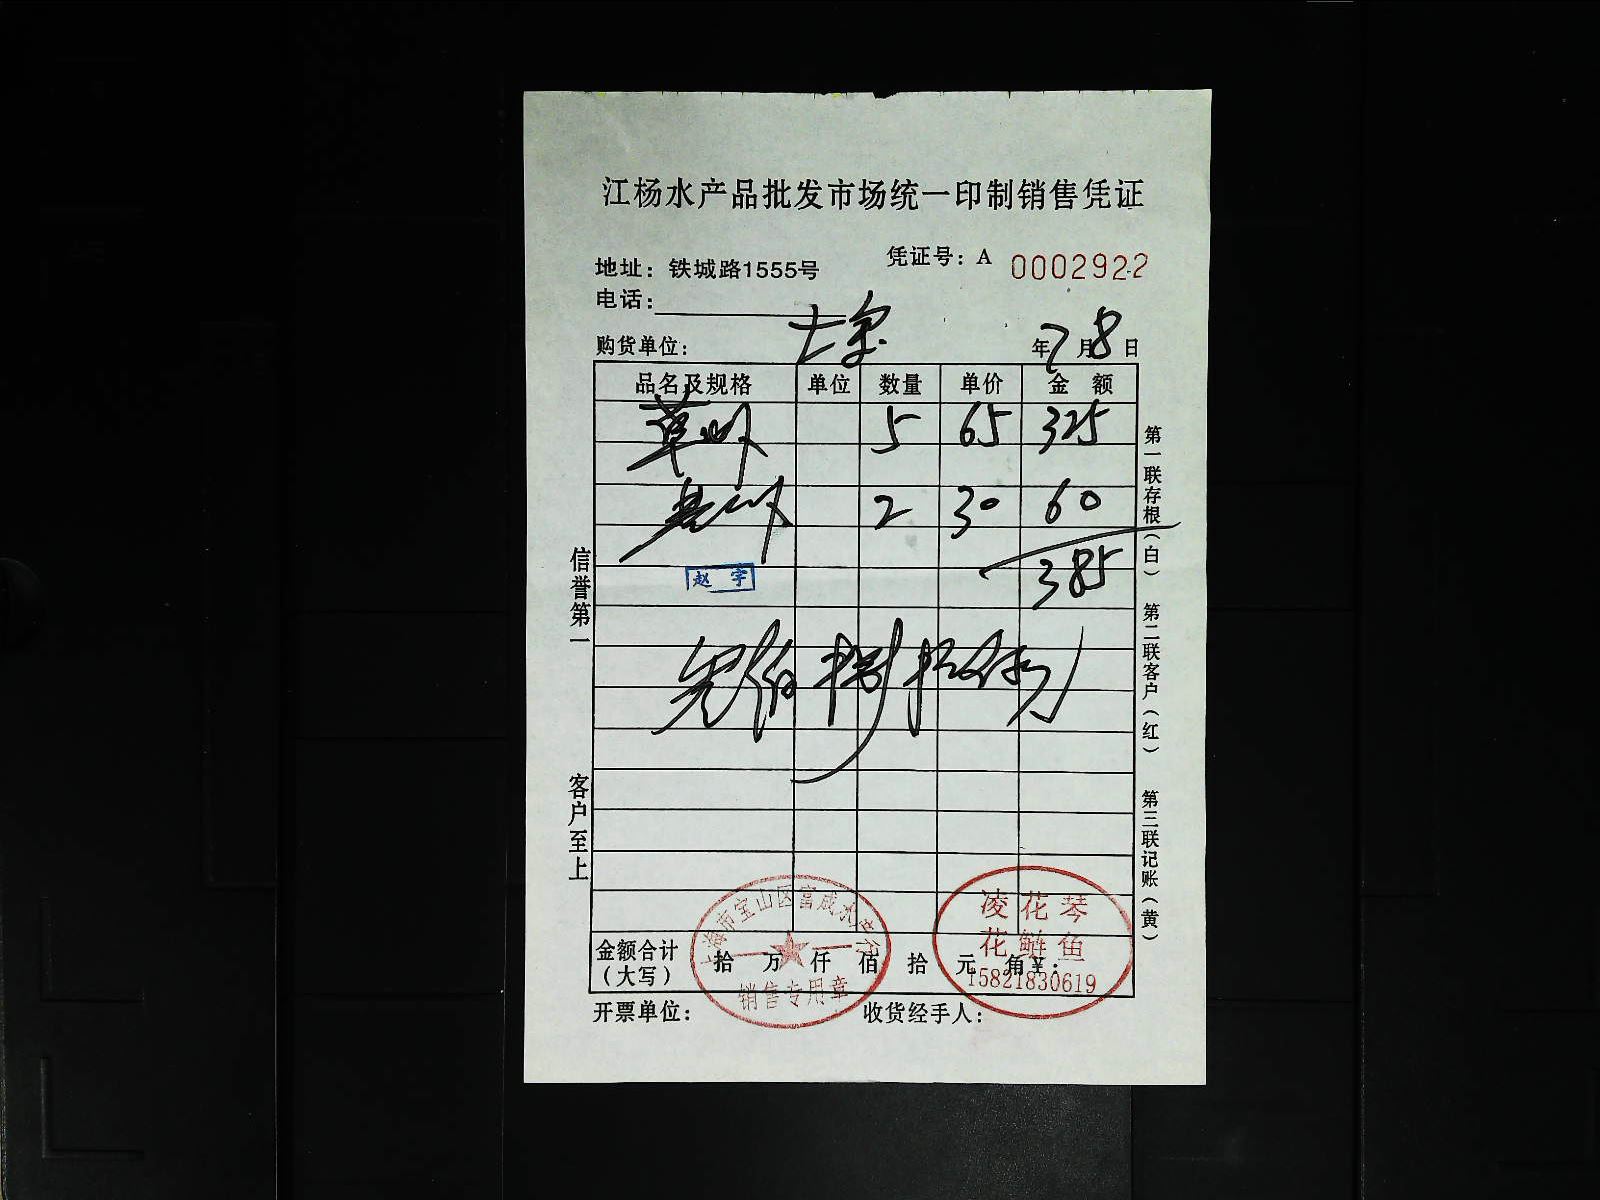 江杨水产品批发市场统一印制销售凭证
凭证号：A 0002922
地址：铁城路1555号
电话：
购货单位：
年 7 月 8 日
品名及规格 单位 数量 单价 金 额
5 65 325
2 30 60
385
赵 宇
叁佰捌拾伍
金额合计（大写） 拾 万 仟 佰 拾 元 角 ￥：
开票单位：
收货经手人：
信誉第一
客户至上
第一联存根（白）
第二联客户（红）
第三联记账（黄）
上海市宝山区富成水产行
销售专用章
凌花琴
花鲢鱼
15821830619